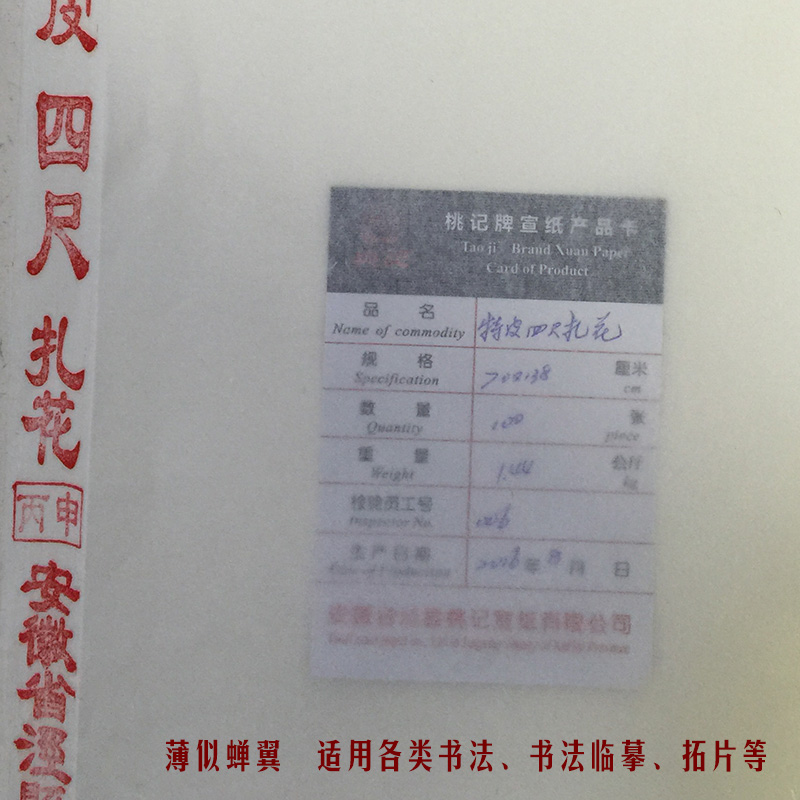 皮
四
尺
扎
花
丙申
安
徽
省
泾
桃记牌宣纸产品卡
Tao ji Brand Xuan Paper
Card of Product
品 名
Name of commodity
特皮四尺扎花
规 格
Specification
厘米
cm
数 量
Quantity
100
张
piece
重 量
Weight
1.44
公斤
kg
检验员工号
Inspector No.
006
生产日期
2016年 月 日
薄似蝉翼 适用各类书法、书法临摹、拓片等